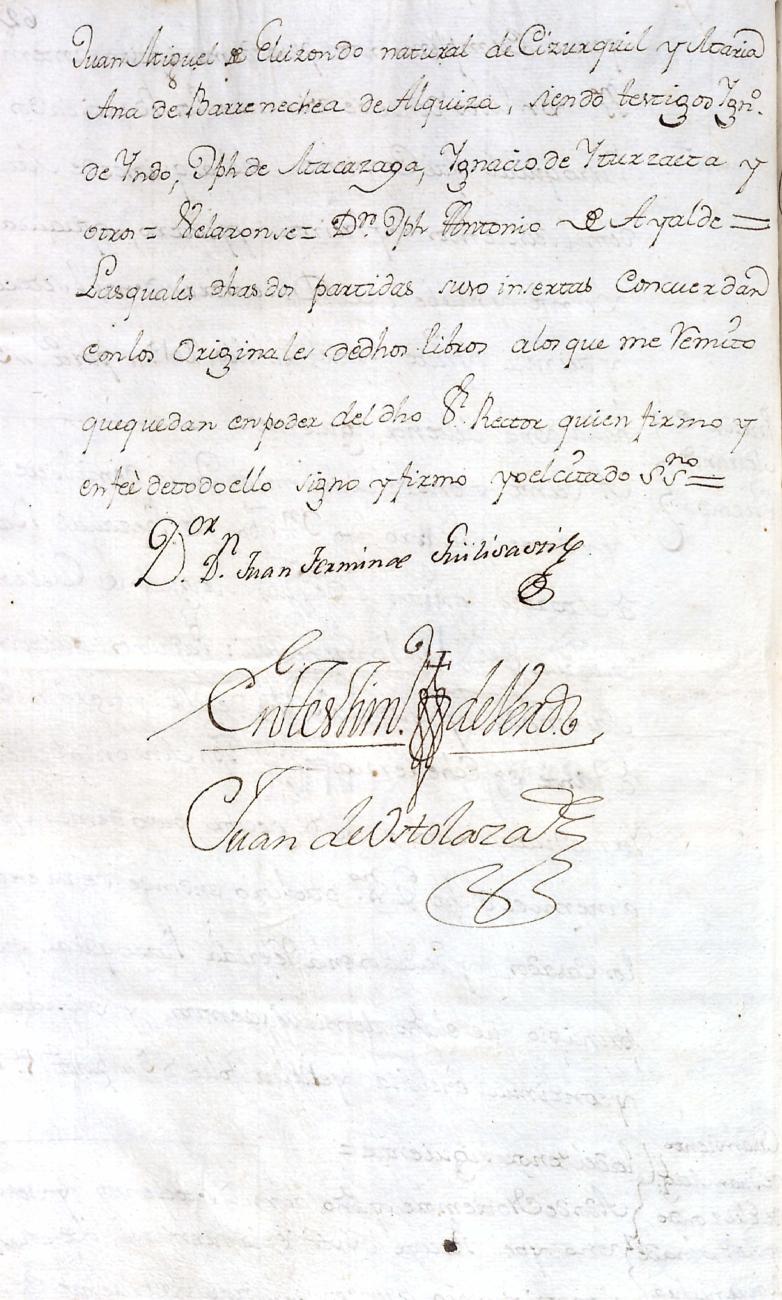 Juan Miguel de Eleizondo natural de Cizurquil y Maria
Ana de Barrenechea de Alquiza, siendo testigos Ygnº.
de Yndo, Jph de Macazaga, Ygnacio de Yturzaeta y
otros = Velaronse = Dn. Jph Antonio de Ayalde =
Las quales dhas dos partidas suso insertas Concuerdan
con los Originales de dhos libros a los que me Remito
que quedan en poder del dho Sr. Rector quien firmo y
en feè de todo ello signo y firmo yo el citado SSno =
Dor. Dn. Juan Fermin de
En testimº. de Verd.
Juan de Ostolaza